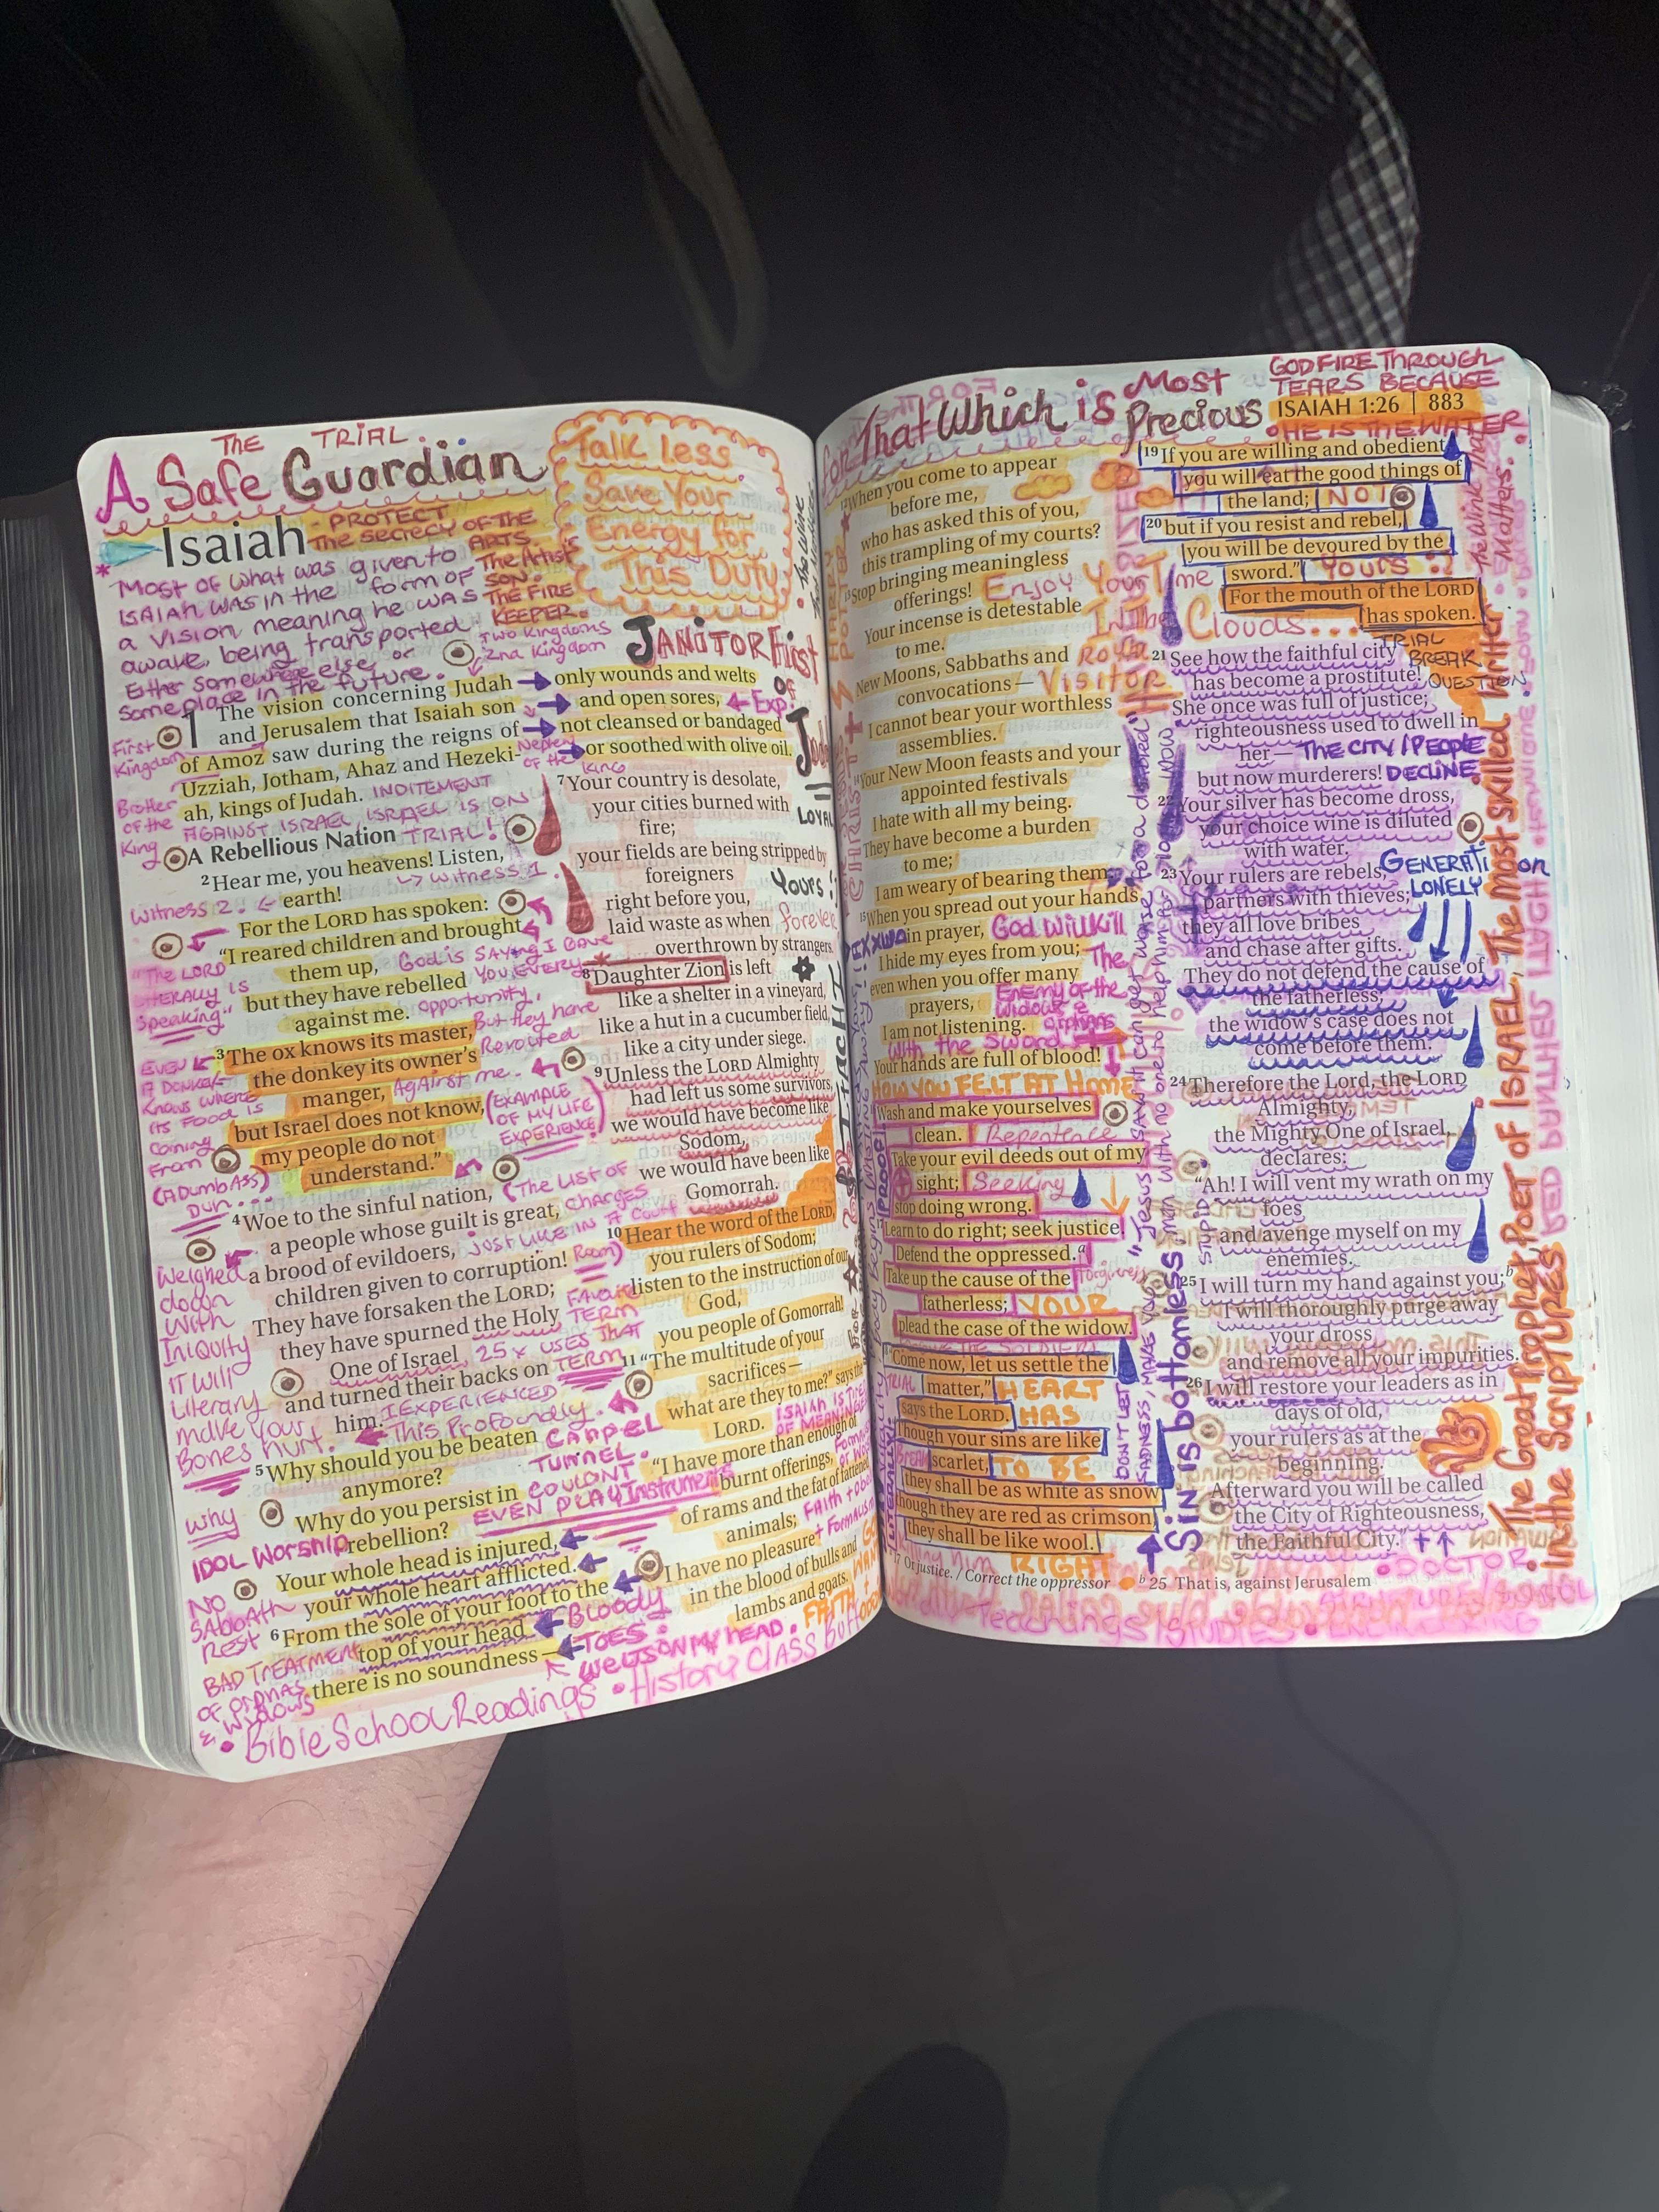 THE TRIAL.
A Safe Guardian
Talk less
Save Your
Energy for
This Duty
Isaiah
- PROTECT
The secrecy of the
ARTS.
The Artist
SON.
THE FIRE
KEEPER.
Most of what was given to
ISAIAH WAS IN THE form OF
a vision meaning he was
awake, being transported
Either somewhere else or
Someplace in the future.
Two Kingdoms
2nd Kingdom
JANITOR First
OF
First
Kingdom
1 The vision concerning Judah
and Jerusalem that Isaiah son
of Amoz saw during the reigns of
Uzziah, Jotham, Ahaz and Hezeki-
ah, kings of Judah. INDITEMENT
AGAINST ISRAEL, ISRAEL IS ON
Brother
of the
King
A Rebellious Nation TRIAL!
2Hear me, you heavens! Listen,
Witness 1.
Witness 2. earth!
For the LORD has spoken:
“I reared children and brought
them up, God is saying I gave
"The LORD
LITERALLY is
Speaking"
but they have rebelled You every
against me. opportunity,
3The ox knows its master, But they have
the donkey its owner’s Revolted
manger, AgAinst me.
but Israel does not know, (EXAMPLE
my people do not OF MY LIFE
understand.” EXPERIENCE)
EVEN
A DONKEY
Knows where
its Food is
Coming
From
(A Dumb Ass)
Duh...
4Woe to the sinful nation, (The List of
a people whose guilt is great, charges
a brood of evildoers, just like in a court
children given to corruption! Room)
They have forsaken the LORD; Favorite
they have spurned the Holy TERM
One of Israel 25x USES THAT
and turned their backs on TERM
him. I EXPERIENCED
This Profoundly.
Weighed
down
With
Iniquity
IT WILL
Literary
make your
Bones hurt.
5Why should you be beaten CARPEL
anymore? TUNNEL.
Why do you persist in COULDNT
rebellion? EVEN PLAY Instruments
Why
IDOL Worship
Your whole head is injured,
your whole heart afflicted.
6From the sole of your foot to the
top of your head BLOODY
there is no soundness— TOES.
Welts on my HEAD.
NO
SABBATH
REST
BAD TREATMENT
OF ORPHANS
& WIDOWS
• Bible School Readings • History Class
only wounds and welts
and open sores, Exp.
not cleansed or bandaged
or soothed with olive oil.
7Your country is desolate,
your cities burned with
fire;
your fields are being stripped by
foreigners
right before you,
laid waste as when
overthrown by strangers.
LOYAL
Yours
forever
8Daughter Zion is left
like a shelter in a vineyard,
like a hut in a cucumber field,
like a city under siege.
9Unless the LORD Almighty
had left us some survivors,
we would have become like
Sodom,
we would have been like
Gomorrah.
10Hear the word of the LORD,
you rulers of Sodom;
listen to the instruction of our
God,
you people of Gomorrah!
11“The multitude of your
sacrifices—
what are they to me?” says the
LORD.
“I have more than enough of
burnt offerings,
of rams and the fat of fattened
animals;
I have no pleasure
in the blood of bulls and
lambs and goats.
For That Which is Most
Precious
GOD FIRE THROUGH
TEARS BECAUSE
ISAIAH 1:26 | 883
• HE IS THE WATER
12When you come to appear
before me,
who has asked this of you,
this trampling of my courts?
13Stop bringing meaningless
offerings! Enjoy Your Time
Your incense is detestable In the Clouds...
to me.
New Moons, Sabbaths and
convocations— Visitor
I cannot bear your worthless
assemblies.
14Your New Moon feasts and your
appointed festivals
I hate with all my being.
They have become a burden
to me;
I am weary of bearing them.
15When you spread out your hands
in prayer, God will kill
I hide my eyes from you; The
even when you offer many
prayers, Enemy of the
widows &
I am not listening. orphans
with the Sword.
Your hands are full of blood!
HOW YOU FELT AT HOME
16Wash and make yourselves
clean. Repentence
Take your evil deeds out of my
sight; Seeking
stop doing wrong.
17Learn to do right; seek justice.
Defend the oppressed.a
Take up the cause of the Forgiveness
fatherless; YOUR
plead the case of the widow.
18“Come now, let us settle the
TRIAL matter,” HEART
says the LORD. HAS
“Though your sins are like
BREAK scarlet, TO BE
they shall be as white as snow;
though they are red as crimson,
they shall be like wool.
RIGHT
a 17 Or justice. / Correct the oppressor
b 25 That is, against Jerusalem
19If you are willing and obedient,
you will eat the good things of
the land; NOT
20but if you resist and rebel,
you will be devoured by the
sword.” YOURS
For the mouth of the LORD
has spoken.
TRIAL
BREAK
QUESTION
21See how the faithful city
has become a prostitute!
She once was full of justice;
righteousness used to dwell in
her— THE CITY/PEOPLE
but now murderers! DECLINE
22Your silver has become dross,
your choice wine is diluted
with water.
23Your rulers are rebels, GENERATION
partners with thieves; LONELY
they all love bribes
and chase after gifts.
They do not defend the cause of
the fatherless;
the widow’s case does not
come before them.
24Therefore the Lord, the LORD
Almighty,
the Mighty One of Israel,
declares:
“Ah! I will vent my wrath on my
foes
and avenge myself on my
enemies.
25I will turn my hand against you;b
I will thoroughly purge away
your dross
and remove all your impurities.
26I will restore your leaders as in
days of old,
your rulers as at the
beginning.
Afterward you will be called
the City of Righteousness,
the Faithful City.”
• DOCTOR
Sin is bottomless
DON'T LET
SADNESS, MAKE YOU
STUPID
The Great Prophet, POET OF ISRAEL, The most skilled writer
in the SCRIPTURES